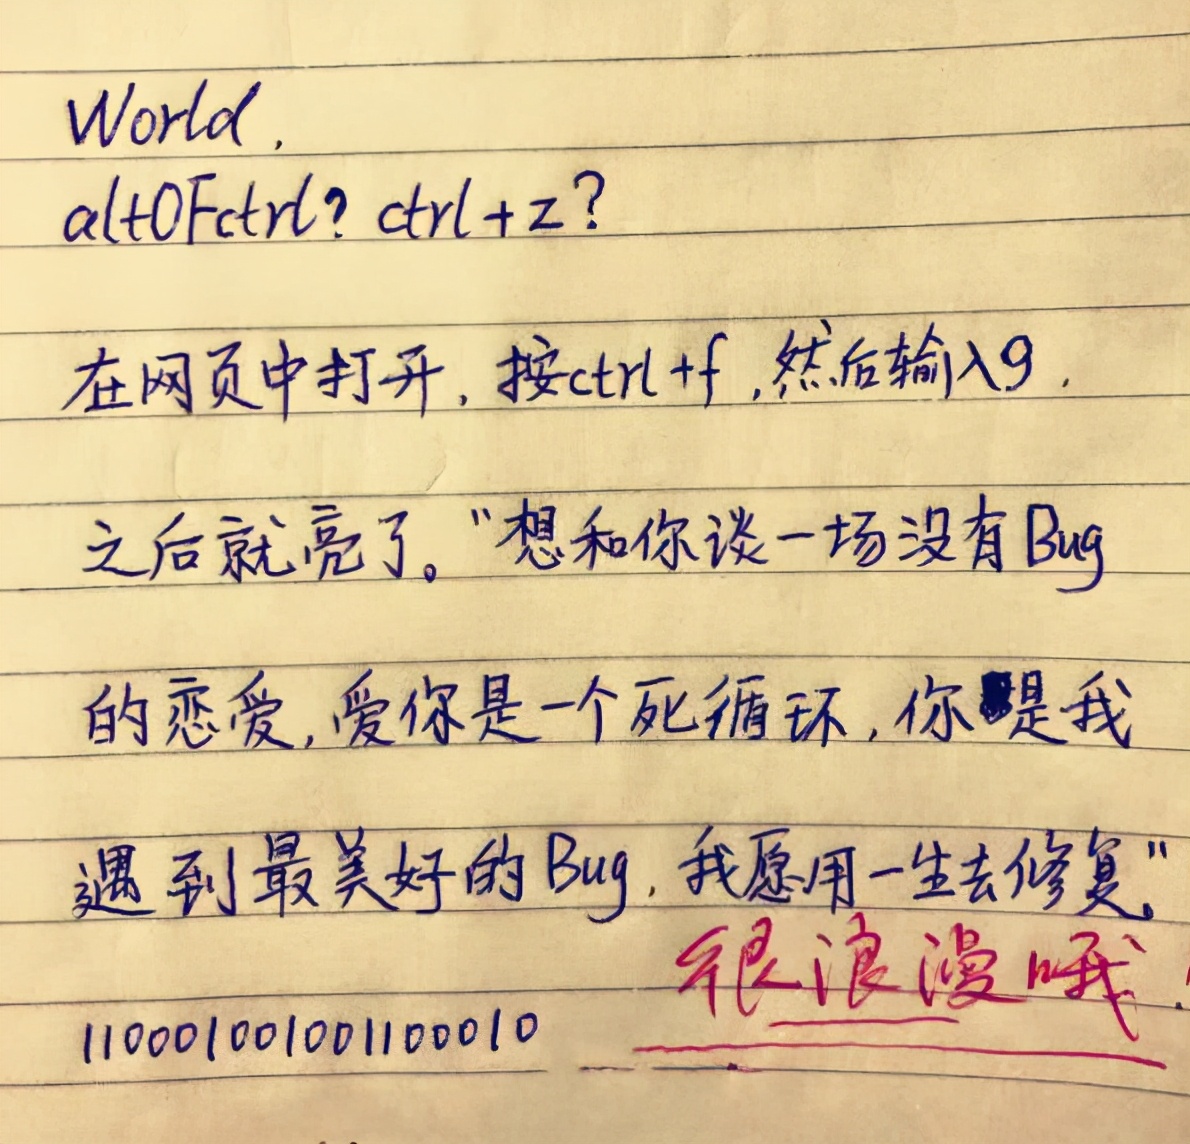 World,
altOFctrl? ctrl+z?
在网页中打开，按ctrl+f，然后输入9，
之后就亮了。“想和你谈一场没有Bug
的恋爱，爱你是一个死循环，你是我
遇到最美好的Bug，我愿用一生去修复。”
很浪漫哦！
110001001001100010